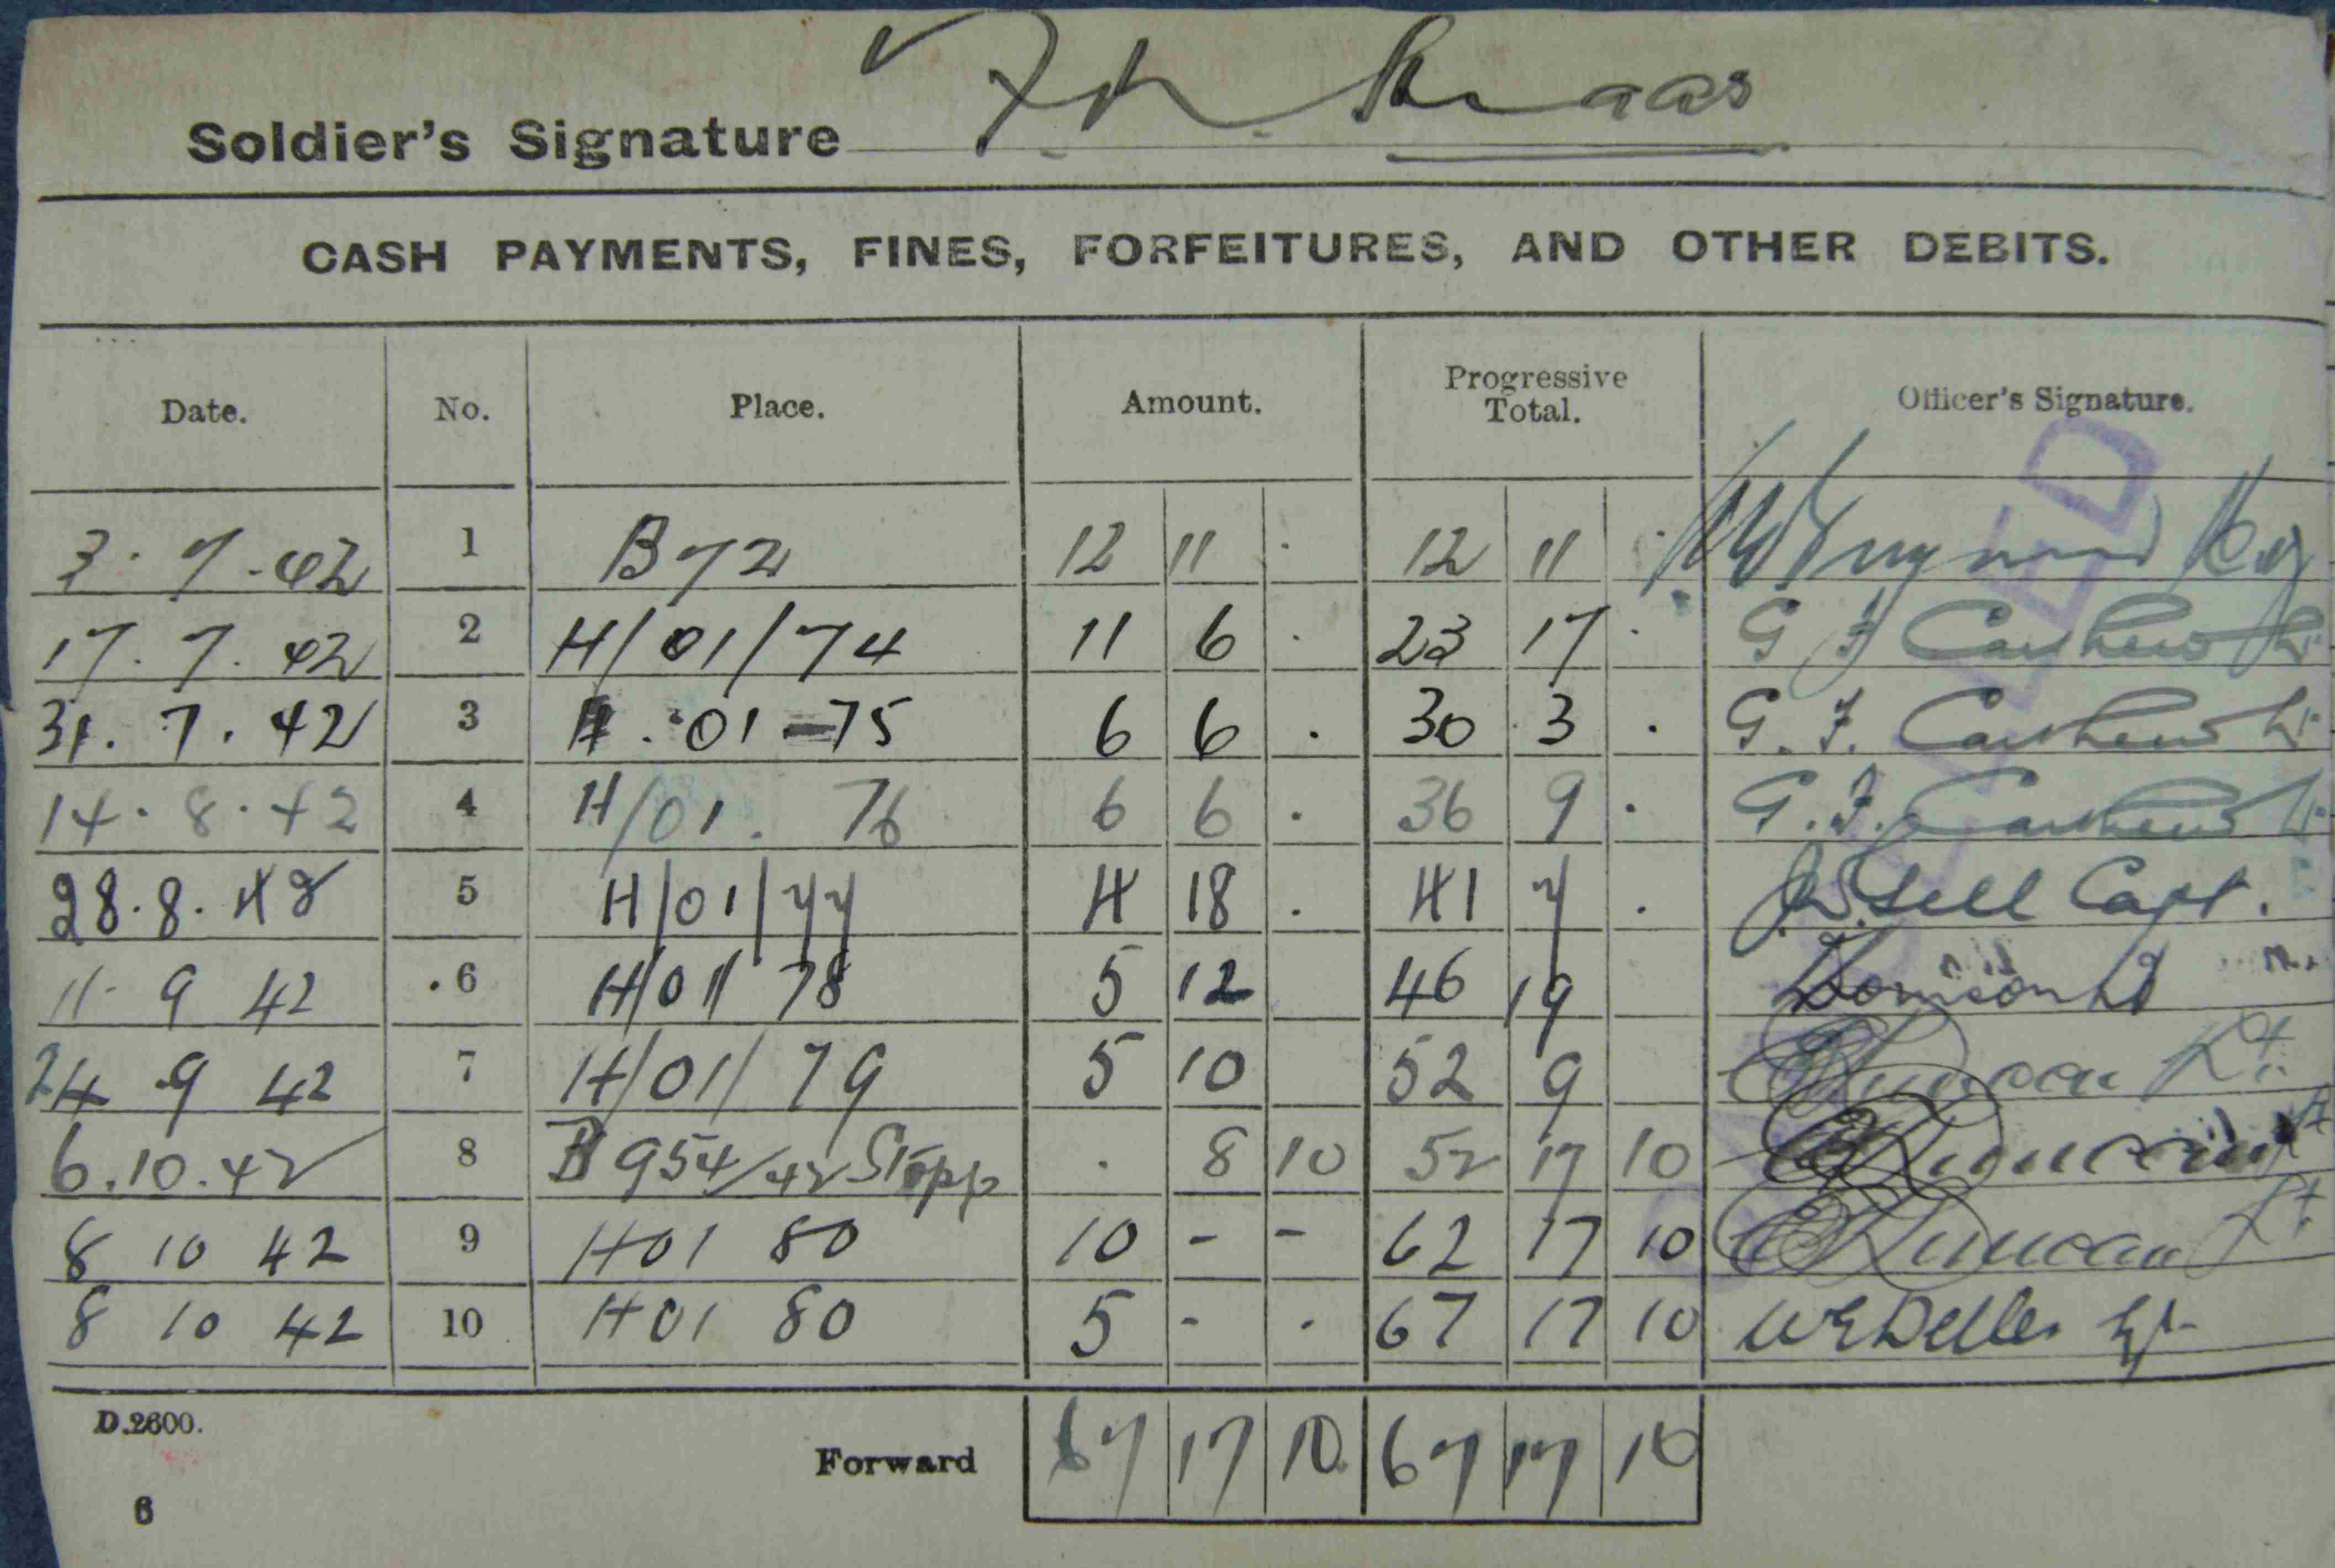 Soldier's Signature
CASH PAYMENTS, FINES, FORFEITURES, AND OTHER DEBITS.
Date. No. Place. Amount. Progressive Total. Officer's Signature.
3. 7. 42 1 B 72 12 11 . 12 11 .
17. 7. 42 2 H/01/74 11 6 . 23 17 . G F
31. 7. 42 3 H. 01-75 6 6 . 30 3 . G. F.
14. 8. 42 4 H/01. 76 6 6 . 36 9 . G. F.
28. 8. 42 5 H/01/77 4 18 . 41 7 . Capt.
11. 9 42 .6 H/01/ 78 5 12 46 19
24 .9 42 7 H/01/ 79 5 10 52 9 Duncan Lt.
6.10.42 8 B 954/42 Stopp . 8 10 52 17 10 Duncan Lt
8 10 42 9 H01 80 10 - - 62 17 10 Duncan Lt.
8 10 42 10 H01 80 5 - . 67 17 10
D.2600.
Forward 67 17 10 67 17 10
6